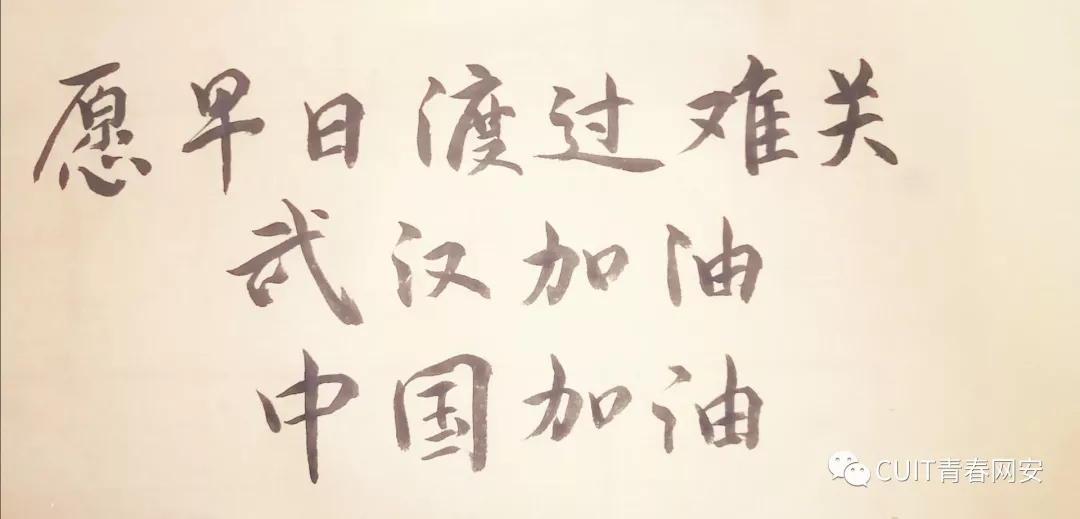 愿早日渡过难关
武汉加油
中国加油
CUIT青春网安